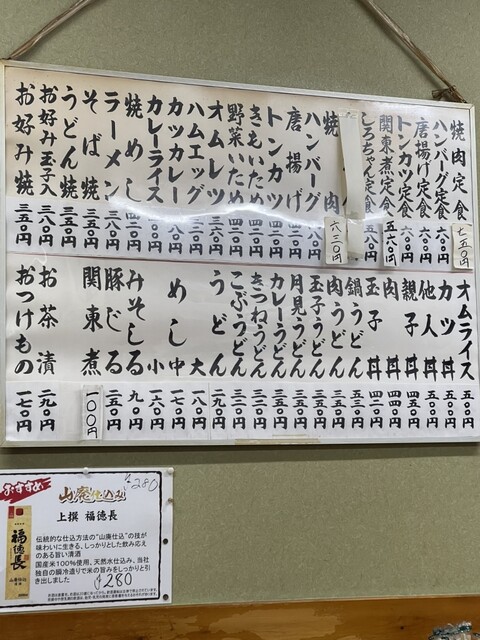 焼肉定食 七五〇円
ハンバーグ定食 六〇〇円
唐揚げ定食 六〇〇円
トンカツ定食 六〇〇円
関東煮定食 五六〇円
しろちゃん定食 五八〇円
焼肉 六三〇円
ハンバーグ
唐揚げ
トンカツ
きもいため 四二〇円
野菜いため 四二〇円
オムレツ
ハムエッグ
カツカレー
カレーライス
焼めし
ラーメン 三八〇円
そば焼 三五〇円
うどん焼 三五〇円
お好み玉子入 三八〇円
お好み焼 三五〇円
オムライス 五〇〇円
カツ丼
他人丼 五〇〇円
親子丼 四五〇円
肉丼
玉子丼 四二〇円
鍋うどん
肉うどん
玉子うどん
月見うどん
カレーうどん
きつねうどん
こぶうどん
うどん 二九〇円
めし 大 一八〇円
中 一七〇円
小 一六〇円
みそしる 九〇円
豚じる 二五〇円
関東煮 一〇〇円
お茶漬 二九〇円
おつけもの 一七〇円
おすすめ
山廃仕込み
¥280
上撰 福徳長
伝統的な仕込方法の"山廃仕込"の技が
味わいに生きる、しっかりとした飲み応え
のある旨い清酒
国産米100%使用、天然水仕込み、当社
独自の瞬冷造りで米の旨みをしっかりと引
き出しました
¥280
福徳長